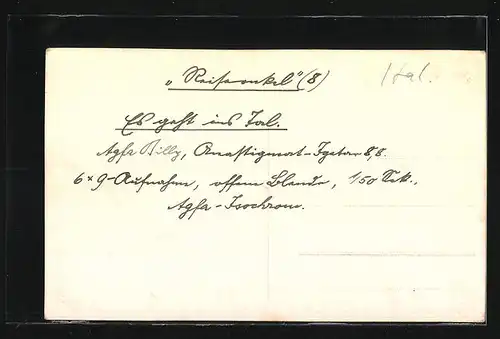 „Reiseonkel" (8)
Ital.
Es geht ins Tal.
Agfa Billy, Anastigmat-Igetar 8,8.
6×9-Aufnahm, offene Blende, 1/50 Sek.,
Agfa-Isochrom.